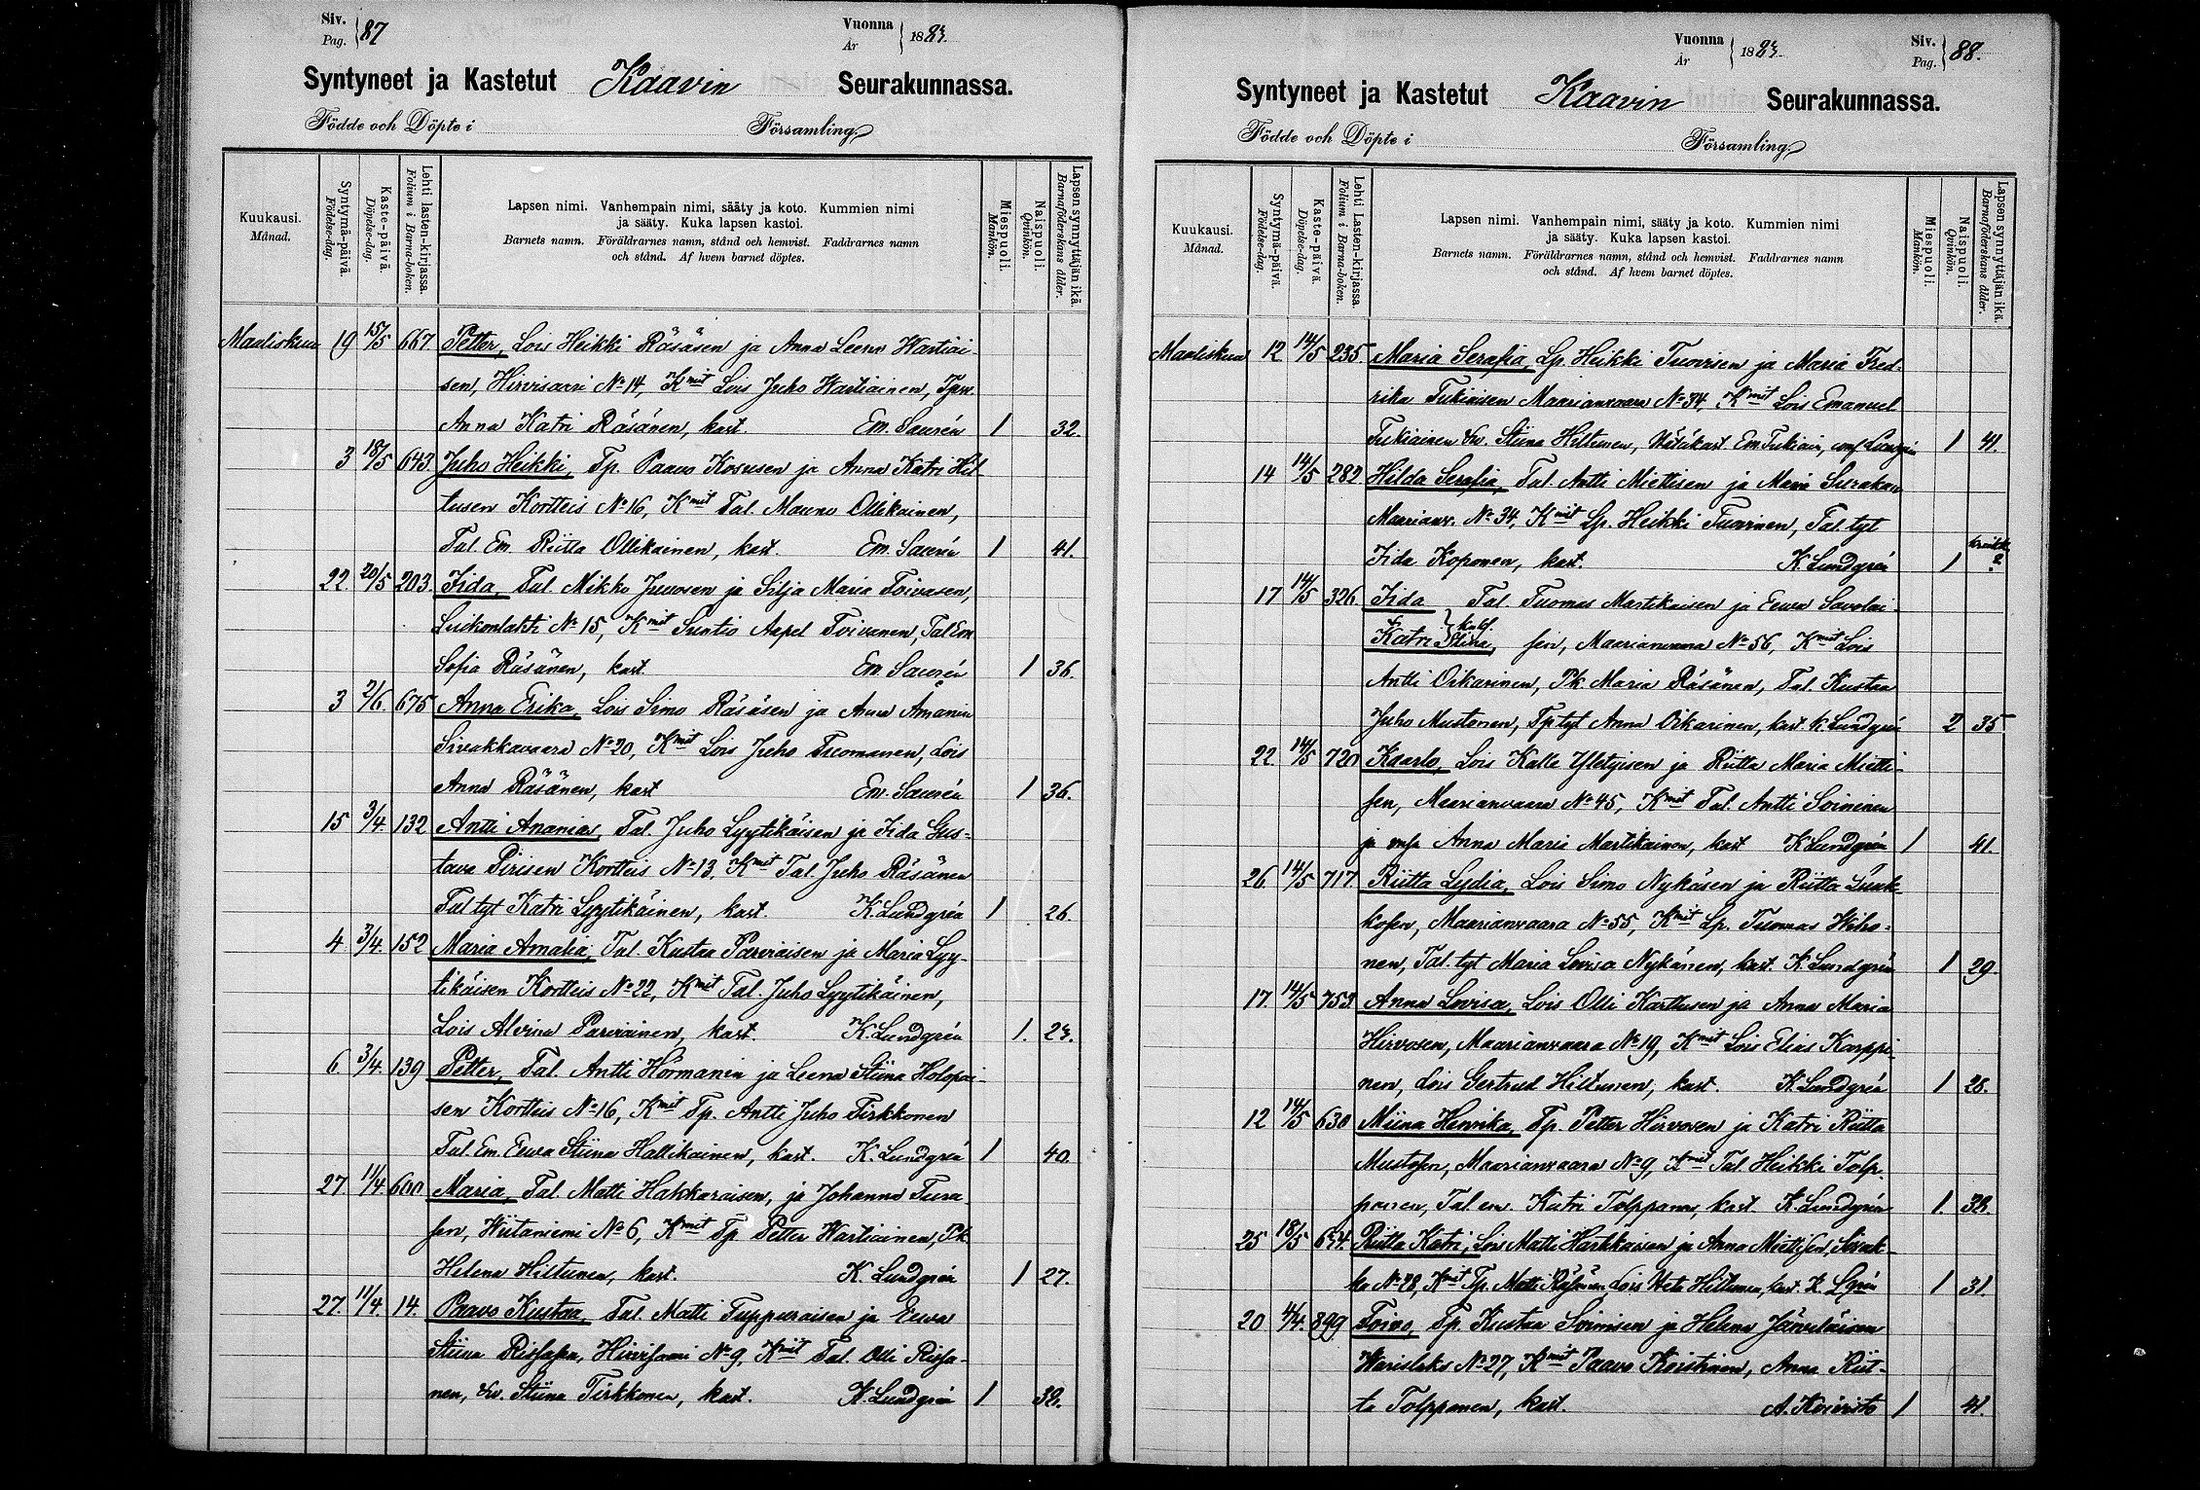 Siv. Pag. 87 Vuonna År 1883.
Syntyneet ja Kastetut Kaavin Seurakunnassa.
Födde och Döpte i Församling
Kuukausi. Månad.
Syntymä-päivä. Födelse-dag.
Kaste-päivä. Döpelse-dag.
Lehti lasten-kirjassa. Folium i Barna-boken.
Lapsen nimi. Vanhempain nimi, sääty ja koto. Kummien nimi
ja sääty. Kuka lapsen kastoi.
Barnets namn. Föräldrarnes namn, stånd och hemvist. Faddrarnes namn
och stånd. Af hvem barnet döptes.
Miespuoli. Mankön.
Naispuoli. Qvinkön.
Lapsen synnyttäjän ikä. Barnaföderskans ålder.
Maaliskuu 19 15/5 667 Petter, Lois Heikki Räsäsen ja Anna Leena Wartiai
sen, Hirvisaari No 14, Kmit Lois Juho Wartiainen,
Anna Katri Räsänen, kast. Em. Saurén 1 32.
3 18/5 643. Juho Heikki, Tp. Paavo Kososen ja Anna Katri Hil
tusen Kortteis No 16, Kmit Tal. Mauno Ollikainen,
Tal. Em. Riitta Ollikainen, kast. Em. Saurén 1 41.
22. 20/5 203. Iida, Tal. Mikko Juuosen ja Silja Maria Toivasen,
Luikonlahti No 15, Kmit Suntio Aapel Toivanen, Tal Em
Sofia Räsänen, kast. Em. Saurén 1 36.
3 2/6. 675 Anna Erika, Lois Simo Räsäsen ja Anna Åmanin
Sivakkavaara No 20, Kmit Lois Juho Tuomanen, Lois
Anna Räsänen, kast Em. Saurén 1 36.
15 3/4. 132 Antti Ananias, Tal. Juho Lyytikäisen ja Iida Gus-
tava Pirisen Kortteis No 13, Kmit Tal. Juho Räsänen
Tal tyt Katri Lyytikäinen, kast. K. Lundgrén 1 26.
4 3/4. 152 Maria Amalia, Tal. Kustaa Parviaisen ja Maria Lyy-
tikäisen Kortteis No 22, Kmit Tal. Juho Lyytikäinen,
Lois Alvina Parviainen, kast. K. Lundgrén 1. 23.
6. 3/4. 139 Petter, Tal. Antti Hörmanin ja Leena Stiina Holopai-
sen Kortteis No 16, Kmit Tp. Antti Juho Tirkkonen
Tal. Em. Eewa Stiina Hallikainen, kast. K. Lundgrén 1 40.
27. 11/4. 600 Maria, Tal. Matti Hakkaraisen, ja Johanna Tura
sen, Wiitaniemi No 6, Kmit Tp Petter Wartiainen, Pk
Helena Hiltunen, kast. K. Lundgrén 1 27.
27. 11/4. 14. Paavo Kustaa, Tal. Matti Tuppuraisen ja Eewa
Stiina Rissasen, Hirvisaari No 9, Kmit Tal. Olli Rissa-
nen, Stiina Tirkkonen, kast. K. Lundgrén 1 32.
Vuonna År 1883. Siv. Pag. 88.
Syntyneet ja Kastetut Kaavin Seurakunnassa.
Födde och Döpte i Församling
Kuukausi. Månad.
Syntymä-päivä. Födelse-dag.
Kaste-päivä. Döpelse-dag.
Lehti Lasten-kirjassa. Folium i Barna-boken.
Lapsen nimi. Vanhempain nimi, sääty ja koto. Kummien nimi
ja sääty. Kuka lapsen kastoi.
Barnets namn. Föräldrarnes namn, stånd och hemvist. Faddrarnes namn
och stånd. Af hvem barnet döptes.
Miespuoli. Mankön.
Naispuoli. Qvinkön.
Lapsen synnyttäjän ikä. Barnaföderskans ålder.
Maaliskuu 12 14/5 235. Maria Serafia, Lp. Heikki Tuovisen ja Maria Fred-
rika Tukiaisen Maarianvaara No 34, Kmit Lois Emanuel
Tukiainen Stiina Hiltunen, Hätäkast Em. Tukiain, 1 41.
14 14/5 282 Hilda Serafia, Tal. Antti Miettisen ja Maria
Maarianv. No 34, Kmit Lp. Heikki Tuovinen, Tal. tyt
Iida Koponen, kast. K. Lundgrén 1 ?
17 14/5 326 Iida Tal. Tuomas Martikaisen ja Eewa Savolai-
Katri Stiina, sen, Maarianvaara No 56, Kmit Lois
Antti Oikarinen, Pk Maria Räsänen, Tal. Kustaa
Juho Mustonen, Tp tyt Anna Oikarinen, kast. K. Lundgrén 2 35
22 14/5 720 Kaarlo, Lois Kalle Yletyisen ja Riitta Maria Mietti-
sen, Maarianvaara No 45, Kmit Tal. Antti Soininen
ja Anna Maria Martikainen, kast K. Lundgrén 1 41.
26. 14/5 717. Riitta Lydia, Lois Simo Nykäsen ja Riitta
kosen, Maarianvaara No 55, Kmit Lp. Tuomas Wiho-
nen, Tal. tyt Maria Lovisa Nykänen, kast. K. Lundgrén 1 29
17. 14/5 753. Anna Lovisa, Lois Olli Karttusen ja Anna Maria
Hirvosen, Maarianvaara No 19, Kmit Lois Elias Karppi-
nen, Lois Gertrud Hiltunen, kast. K. Lundgrén 1 28.
12 14/5 630 Miina Henrika, Tp. Petter Hirvosen ja Katri Riitta
Mustosen, Maarianvaara No 9, Kmit Tal. Heikki Tolp-
panen, Tal. em. Katri Tolppanen, kast K. Lundgrén 1. 32.
25 18/5 654. Riitta Katri, Lois Matti Harkkaisen ja Anna Miettisen, Sivak-
ka No 28, Kmit Tp. Matti Räsänen, Lois Hiltunen, kast. K. Lgrén 1 31.
20 4/4. 899 Toivo, Tp. Kustaa Soinisen ja Helena Järveläisen
Warislaks No 27, Kmit Paavo Koistinen, Anna Riit-
ta Tolppanen, kast. A. Koivisto 1 41.